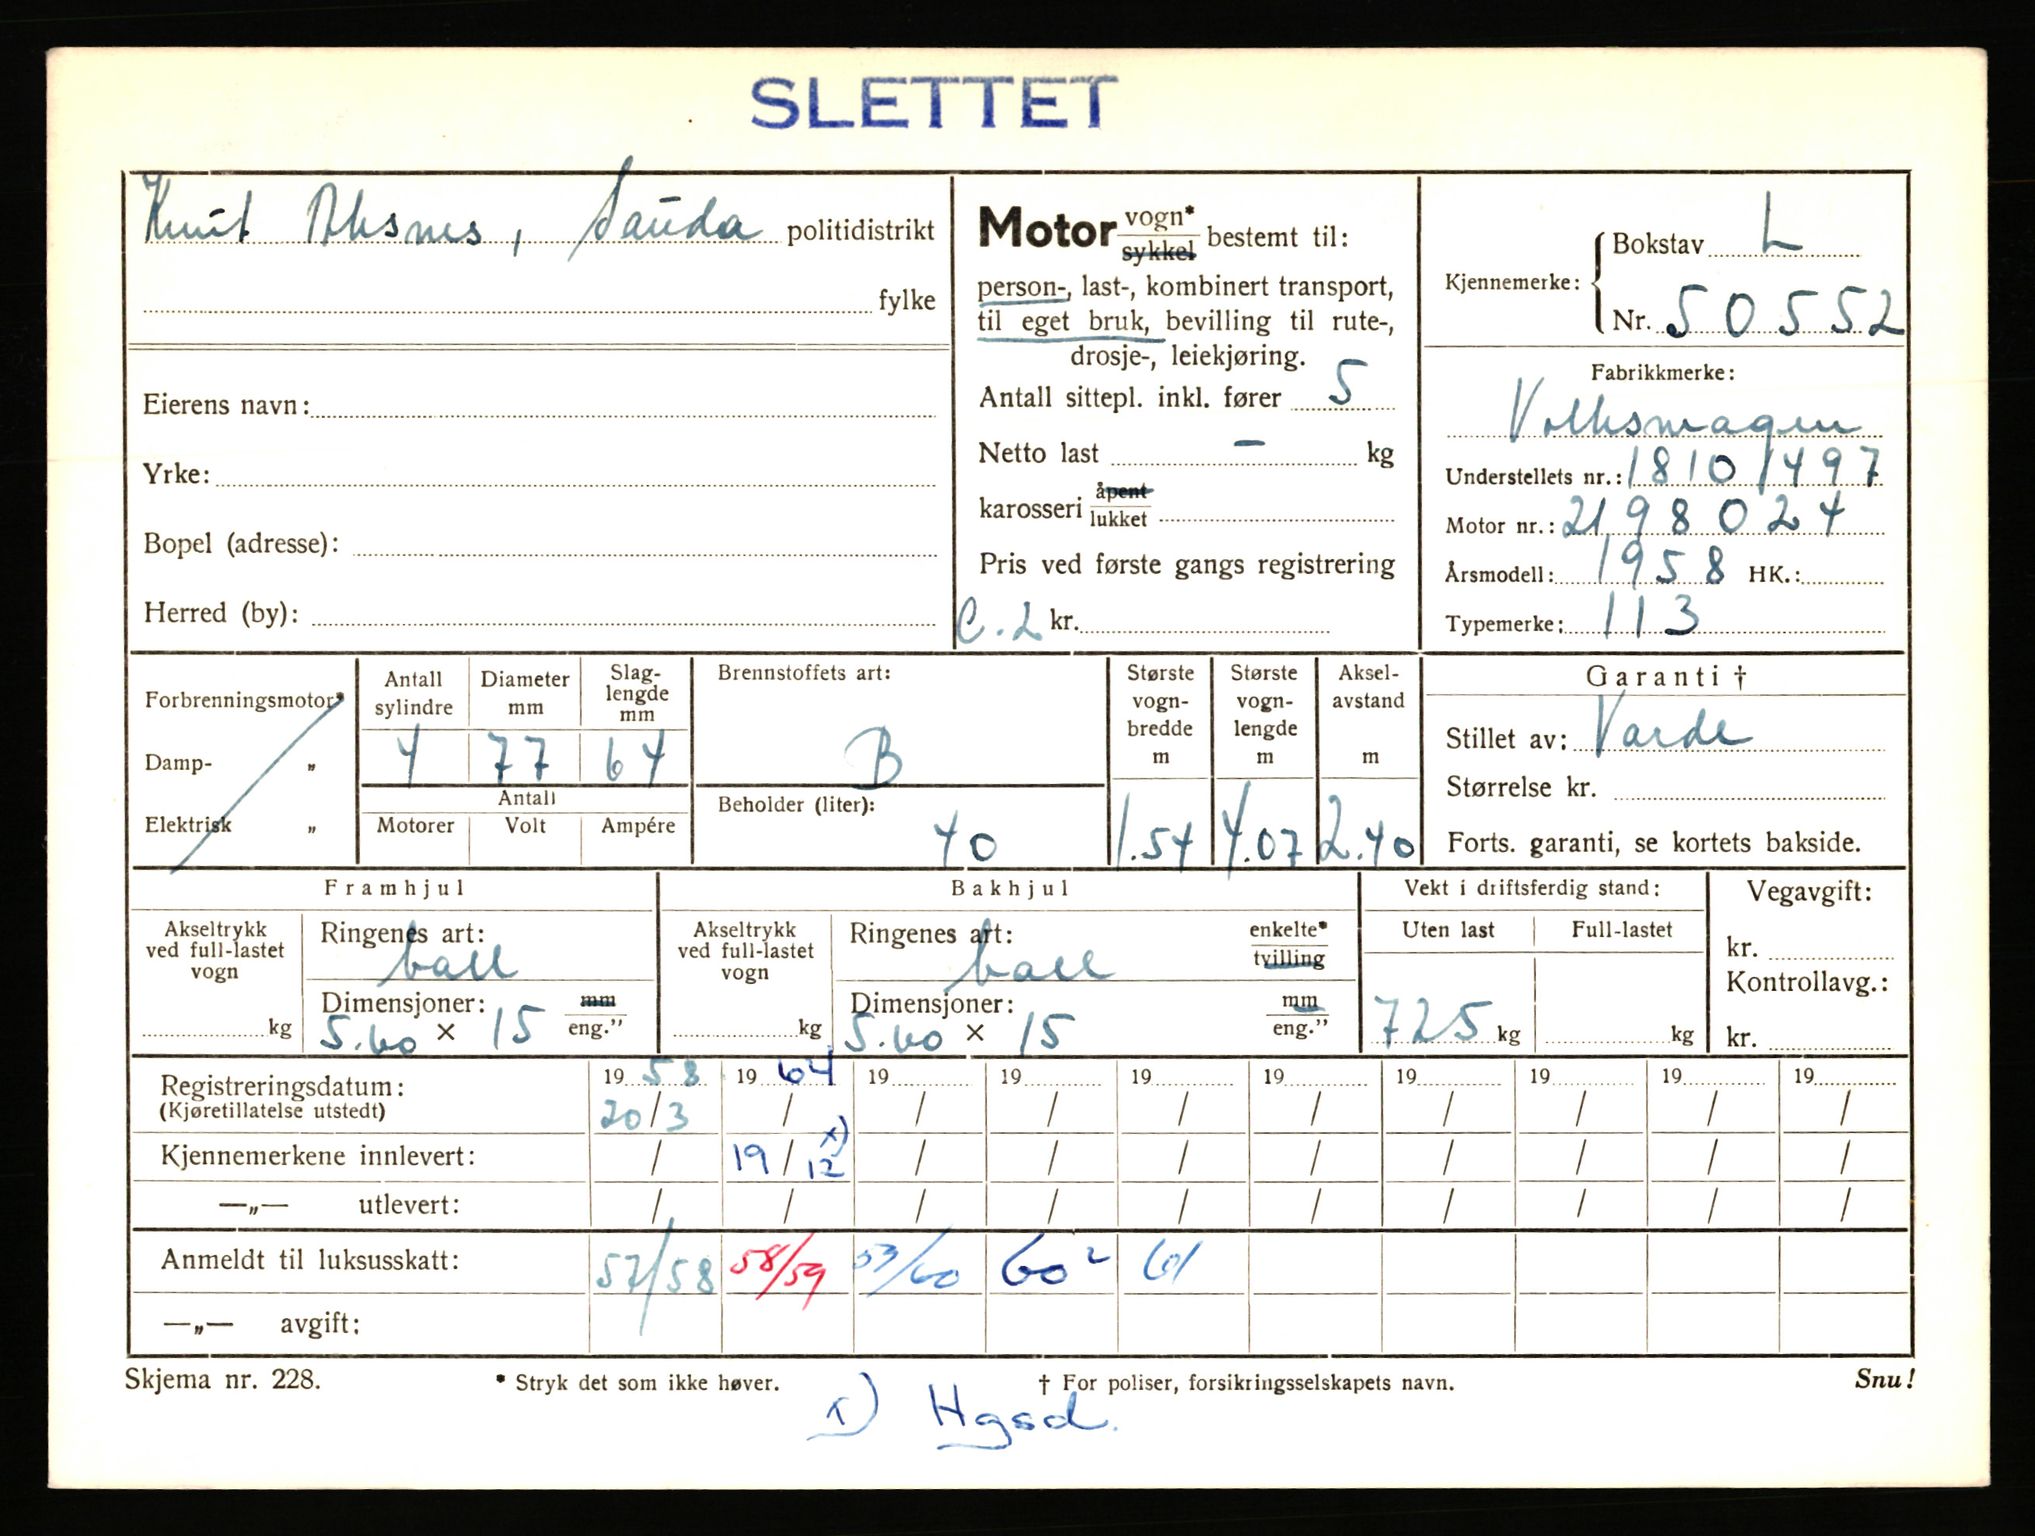 SLETTET
Knut Aksnes, Sauda politidistrikt
fylke
Eierens navn:
Yrke:
Bopel (adresse):
Herred (by):
Motor vogn* sykkel bestemt til:
person-, last-, kombinert transport,
til eget bruk, bevilling til rute-,
drosje-, leiekjøring.
Antall sittepl. inkl. fører 5
Netto last – kg
karosseri åpent lukket
Pris ved første gangs registrering
C.2 kr.
Kjennemerke: { Bokstav L
Nr. 50552
Fabrikkmerke:
Volkswagen
Understellets nr.: 18101497
Motor nr.: 2198024
Årsmodell: 1958 HK.:
Typemerke: 113
Forbrenningsmotor*
Damp- „
Elektrisk „
Antall sylindre Diameter mm Slag-lengde mm
4 77 64
Antall
Motorer Volt Ampére
Brennstoffets art:
B
Beholder (liter):
40
Største vogn-bredde m Største vogn-lengde m Aksel-avstand m
1.54 4.07 2.40
Garanti †
Stillet av: Varde
Størrelse kr.
Forts. garanti, se kortets bakside.
Framhjul
Akseltrykk ved full-lastet vogn
kg
Ringenes art:
ball
Dimensjoner: mm
5.60 x 15 eng."
Bakhjul
Akseltrykk ved full-lastet vogn
kg
Ringenes art: enkelte*
ball tvilling
Dimensjoner: mm
5.60 x 15 eng."
Vekt i driftsferdig stand:
Uten last Full-lastet
725 kg kg
Vegavgift:
kr.
Kontrollavg.:
kr.
Registreringsdatum: 19 58 19 64 19 19 19 19 19 19 19 19
(Kjøretillatelse utstedt) 20/3 / / / / / / / / /
Kjennemerkene innlevert: / 19/12 x) / / / / / / / /
—„— utlevert: / / / / / / / / / /
Anmeldt til luksusskatt: 57/58 58/59 59/60 60² 61
—„— avgift:
Skjema nr. 228. * Stryk det som ikke høver. † For poliser, forsikringsselskapets navn. Snu!
x) Hgsd.